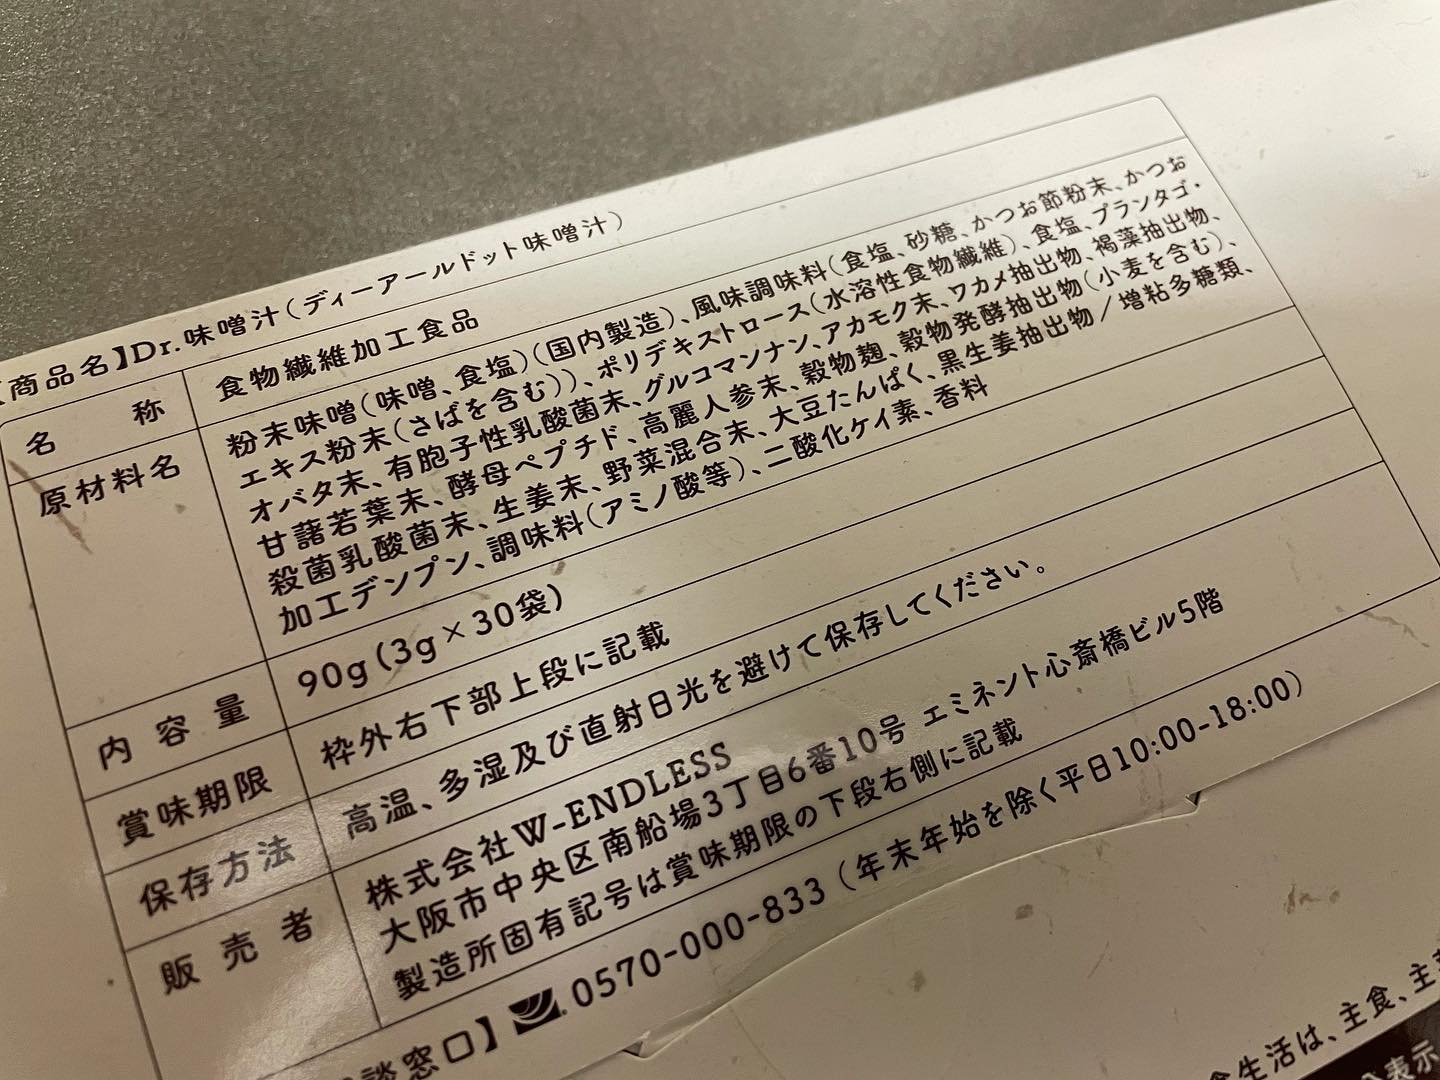 【商品名】Dr.味噌汁(ディーアールドット味噌汁)
名称 食物繊維加工食品
原材料名 粉末味噌(味噌、食塩)(国内製造)、風味調味料(食塩、砂糖、かつお節粉末、かつお
エキス粉末(さばを含む))、ポリデキストロース(水溶性食物繊維)、食塩、プランタゴ・
オバタ末、有胞子性乳酸菌末、グルコマンナン、アカモク末、ワカメ抽出物、褐藻抽出物、
甘藷若葉末、酵母ペプチド、高麗人参末、穀物麹、穀物発酵抽出物(小麦を含む)、
殺菌乳酸菌末、生姜末、野菜混合末、大豆たんぱく、黒生姜抽出物/増粘多糖類、
加工デンプン、調味料(アミノ酸等)、二酸化ケイ素、香料
内容量 90g(3g×30袋)
賞味期限 枠外右下部上段に記載
保存方法 高温、多湿及び直射日光を避けて保存してください。
販売者 株式会社W-ENDLESS
大阪市中央区南船場3丁目6番10号 エミネント心斎橋ビル5階
製造所固有記号は賞味期限の下段右側に記載
談窓口】 0570-000-833(年末年始を除く平日10:00-18:00)
食生活は、主食、主菜
表示